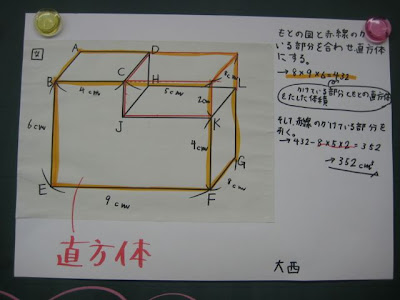 図
A
D
B
4cm
C
H
5cm
8cm
L
J
2cm
K
6cm
4cm
G
E
9cm
F
8cm
直方体
もとの図と赤線のかけて
いる部分を合わせ、直方体
にする。
→8×9×6=432
かけている部分ともとの直方体
をたした体積
そして、赤線のかけている部分を
引く。
→432-8×5×2=352
→352cm³
大西